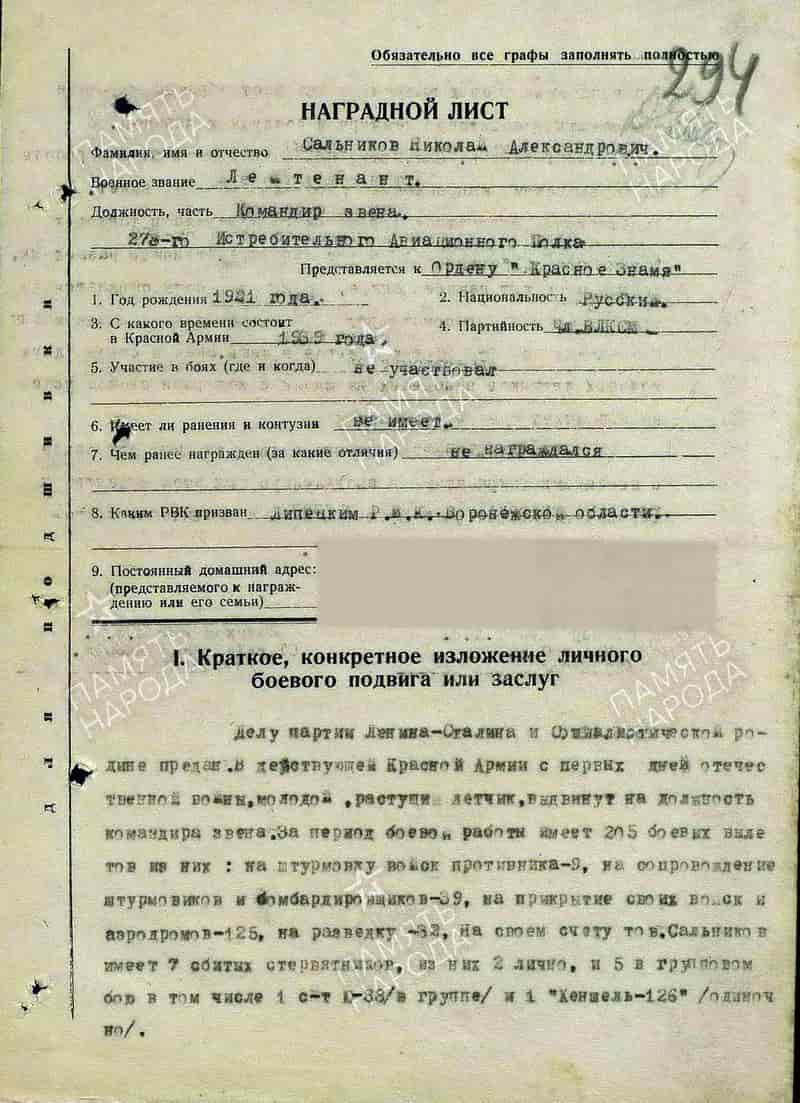 Обязательно все графы заполнять полностью
294
НАГРАДНОЙ ЛИСТ
Фамилия, имя и отчество Сальников Николай Александрович.
Военное звание Лейтенант.
Должность, часть Командир звена,
Истребительного Авиационного Полка
Представляется к Ордену "Красное Знамя"
1. Год рождения 1921 года. 2. Национальность Русский.
3. С какого времени состоит
в Красной Армии года, 4. Партийность Чл.ВЛКСМ.
5. Участие в боях (где и когда) не участвовал
6. Имеет ли ранения и контузии не имеет.
7. Чем ранее награжден (за какие отличия) не награждался
8. Каким РВК призван Липецким Р.В.К. Воронежской области.
9. Постоянный домашний адрес:
(представляемого к награж-
дению или его семьи)
I. Краткое, конкретное изложение личного
боевого подвига или заслуг
Делу партии Ленина-Сталина и Социалистической ро-
дине предан.В действующей Красной Армии с первых дней отечес
твенной войны,молодой ,растущий летчик,выдвинут на должность
командира звена.За период боевой работы имеет 205 боевых выле
тов из них : на штурмовку войск противника-9, на сопровождение
штурмовиков и бомбардировщиков-39, на прикрытие своих войск и
аэродромов-125, на разведку На своем счету тов.Сальников
имеет 7 сбитых стервятников, из них 2 лично, и 5 в групповом
бою в том числе 1 с-т /в группе/ и 1 "Хеншель-126" /одиноч
но/.
ПАМЯТЬ НАРОДА
ПАМЯТЬ НАРОДА
ПАМЯТЬ НАРОДА
ПАМЯТЬ НАРОДА
ПАМЯТЬ НАРОДА
ПАМЯТЬ НАРОДА